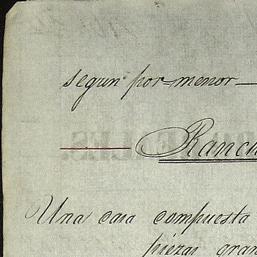 segun por=menor—
Ranc
Una casa compuesta
piezas gran